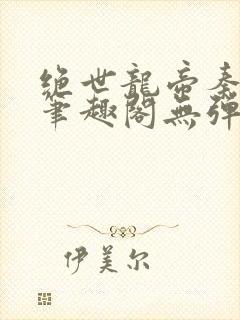 绝世龍帝秦
筆趣閣無彈
伊美尔